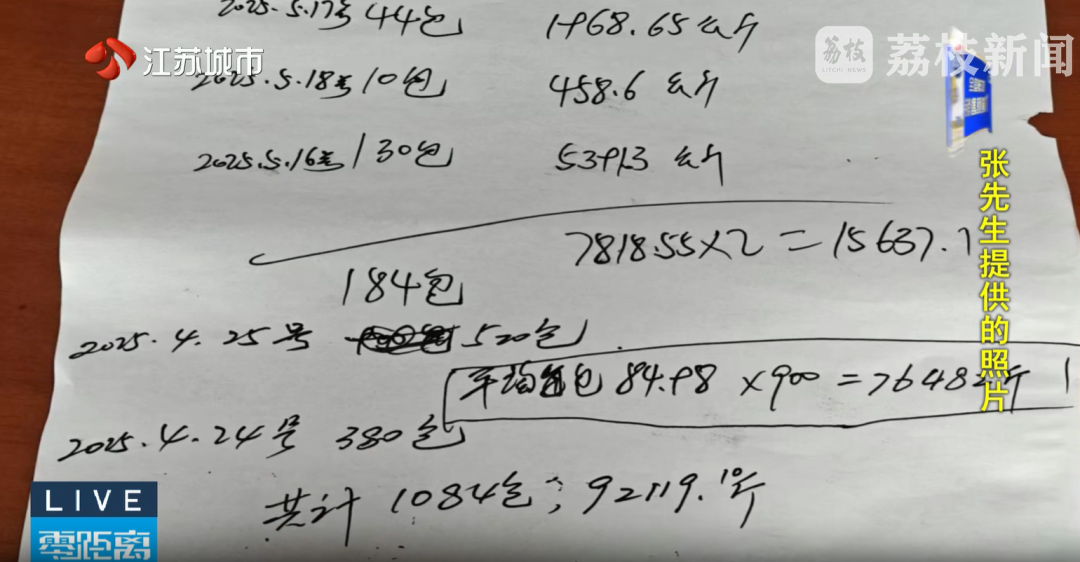 江苏城市
荔枝
LITCHI NEWS
荔枝新闻
2025.5.17号 44包 1968.65公斤
2025.5.18号 10包 458.6公斤
2025.5.16号 130包 5391.3公斤
7818.55×2=15637.1
184包
2025.4.25号 520包
平均每包84.98×900=76482斤
2025.4.24号 380包
共计1084包;92119.10斤
张先生提供的照片
LIVE
零距离